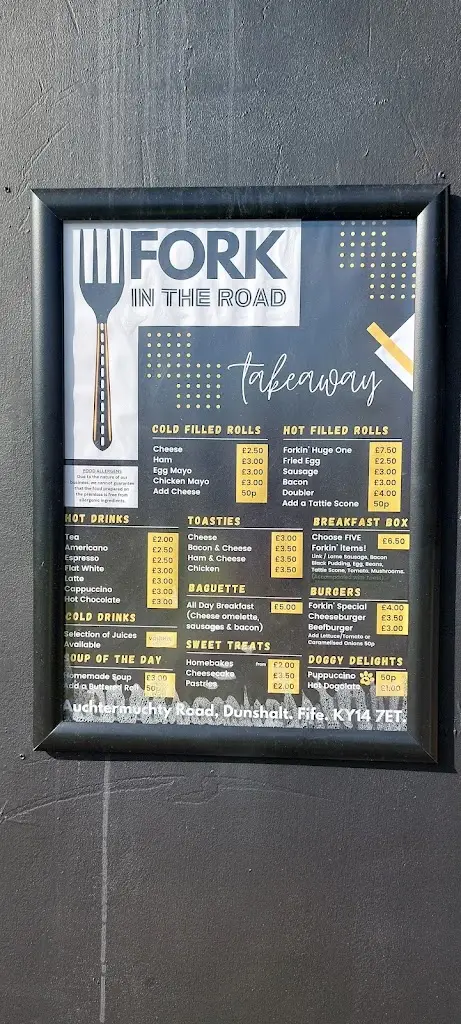 FORK
IN THE ROAD
takeaway
FOOD ALLERGENS
Due to the nature of our
business, we cannot guarantee
that the food prepared on
the premises is free from
allergenic ingredients.
COLD FILLED ROLLS
Cheese £2.50
Ham £3.00
Egg Mayo £3.00
Chicken Mayo £3.00
Add Cheese 50p
HOT FILLED ROLLS
Forkin' Huge One £7.50
Fried Egg £2.50
Sausage £3.00
Bacon £3.00
Doubler £4.00
Add a Tattie Scone 50p
HOT DRINKS
Tea £2.00
Americano £2.50
Espresso £2.50
Flat White £3.00
Latte £3.00
Cappuccino £3.00
Hot Chocolate £3.00
COLD DRINKS
Selection of Juices
Available
SOUP OF THE DAY
Homemade Soup £3.00
Add a Buttered Roll 50p
TOASTIES
Cheese £3.00
Bacon & Cheese £3.50
Ham & Cheese £3.50
Chicken £3.50
BAGUETTE
All Day Breakfast £5.00
(Cheese omelette,
sausages & bacon)
SWEET TREATS
Homebakes From £2.00
Cheesecake £3.50
Pastries £2.00
BREAKFAST BOX
Choose FIVE £6.50
Forkin' Items!
Link / Lorne Sausage, Bacon
Black Pudding, Egg, Beans,
Tattie Scone, Tomato, Mushrooms.
BURGERS
Forkin' Special £4.00
Cheeseburger £3.50
Beefburger £3.00
Add Lettuce/Tomato or
Caramelised Onions 50p
DOGGY DELIGHTS
Puppuccino 50p
Hot Dogolate £1.00
Auchtermuchty Road, Dunshalt, Fife, KY14 7ET